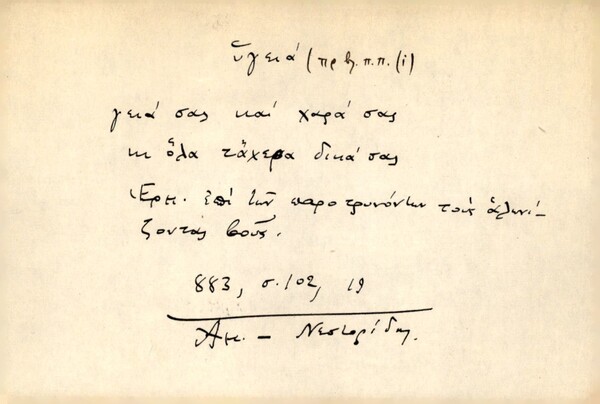 ὑγειά (πρβ. π.π. (i)
γειά σας καί χαρά σας
κι ὅλα τἄχερα δικά σας
Ἑρμ. ἐπί τῶν παροτρυνόντων τούς ἁλωνί-
ζοντας βοῦς.
883, σ. 102, 19
– Νεστορίδης.